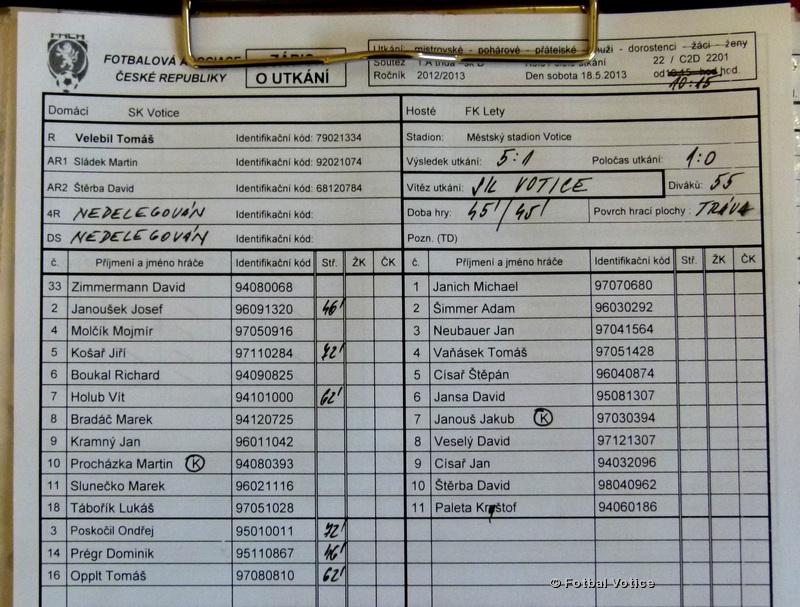 FAČR
FOTBALOVÁ ASOCIACE
ČESKÉ REPUBLIKY
ZÁPIS
O UTKÁNÍ
Utkání: mistrovské - pohárové - přátelské - muži - dorostenci - žáci - ženy
Soutěž 22 / C2D 2201
Ročník 2012/2013 Den sobota 18.5.2013 od 10:15 hod. hod.
10:15
Domácí SK Votice Hosté FK Lety
R Velebil Tomáš Identifikační kód: 79021334 Stadion: Městský stadion Votice
AR1 Sládek Martin Identifikační kód: 92021074 Výsledek utkání: 5:1 Poločas utkání: 1:0
AR2 Štěrba David Identifikační kód: 68120784 Vítěz utkání: SK VOTICE Diváků: 55
4R NEDELEGOVÁN Identifikační kód: Doba hry: 45'/45' Povrch hrací plochy: TRÁVA
DS NEDELEGOVÁN Identifikační kód: Pozn. (TD)
č. Příjmení a jméno hráče Identifikační kód Stř. ŽK ČK č. Příjmení a jméno hráče Identifikační kód Stř. ŽK ČK
33 Zimmermann David 94080068 1 Janich Michael 97070680
2 Janoušek Josef 96091320 46' 2 Šimmer Adam 96030292
4 Molčík Mojmír 97050916 3 Neubauer Jan 97041564
5 Košař Jiří 97110284 72' 4 Vaňásek Tomáš 97051428
6 Boukal Richard 94090825 5 Císař Štěpán 96040874
7 Holub Vít 94101000 62' 6 Jansa David 95081307
8 Bradáč Marek 94120725 7 Janouš Jakub K 97030394
9 Kramný Jan 96011042 8 Veselý David 97121307
10 Procházka Martin K 94080393 9 Císař Jan 94032096
11 Slunečko Marek 96021116 10 Štěrba David 98040962
18 Tábořík Lukáš 97051028 11 Paleta Kryštof 94060186
3 Poskočil Ondřej 95010011 72'
14 Prégr Dominik 95110867 46'
16 Opplt Tomáš 97080810 62'
© Fotbal Votice